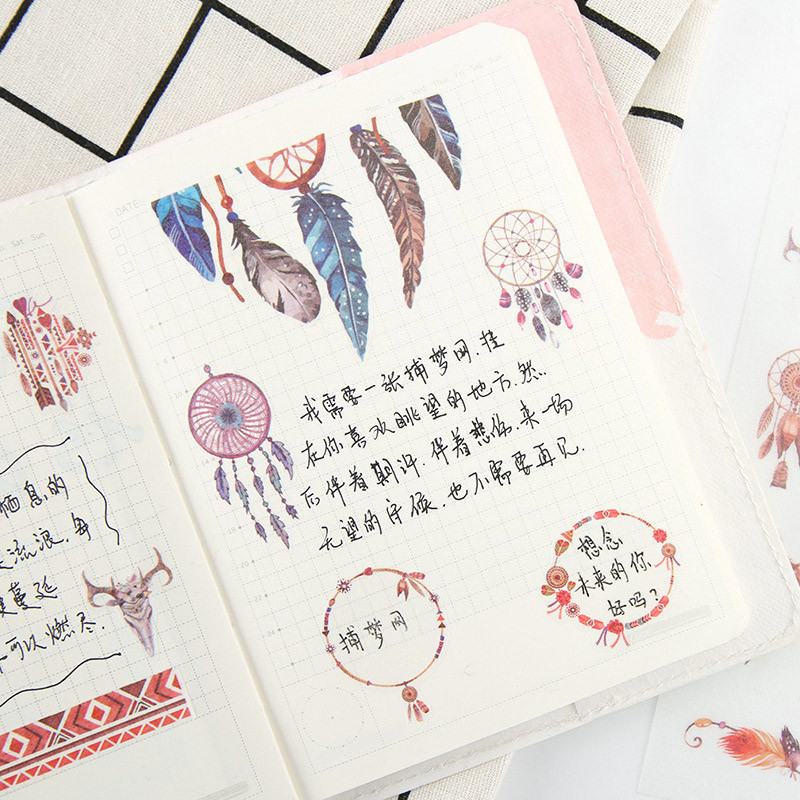 Sat Sun
栖息的
流浪.每
蔓延
可以燃尽.
Mon Tue Wed Thu Fri Sat Sun
DATE
我需要一张捕梦网.挂
在你喜欢眺望的地方.然.
后伴着期许.伴着悲伤.来一场
无望的守候.也不需要再见.
捕梦网
想念
未来的你
好吗?